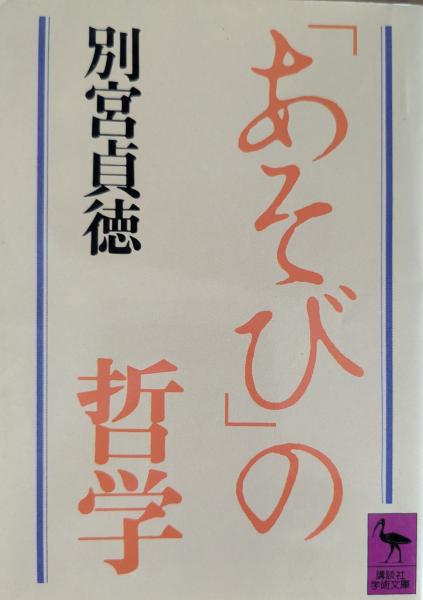 「あそび」の
哲学
別宮貞徳
講談社
学術文庫